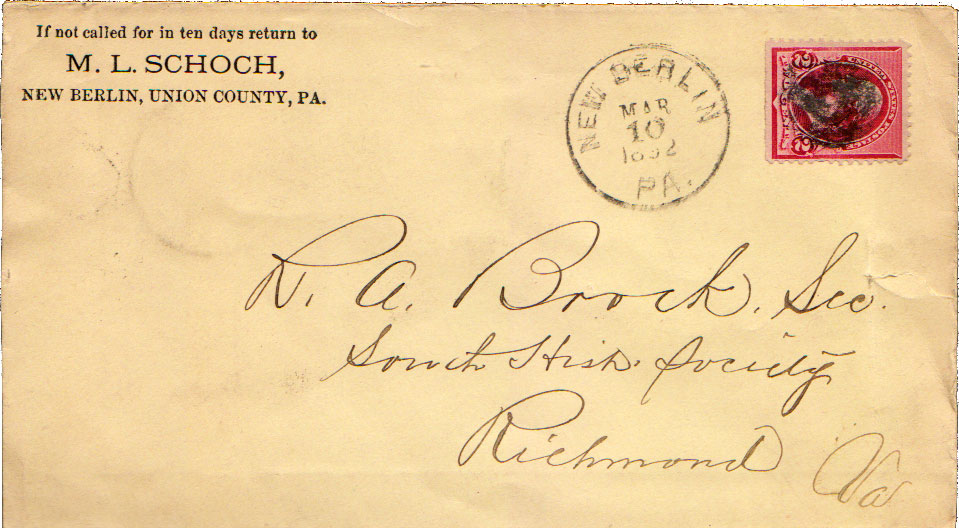 If not called for in ten days return to
M. L. SCHOCH,
NEW BERLIN, UNION COUNTY, PA.
NEW BERLIN
MAR
10
1892
PA.
UNITED STATES POSTAGE
R. A. Brock. Sec.
South Hist. Society
Richmond Va